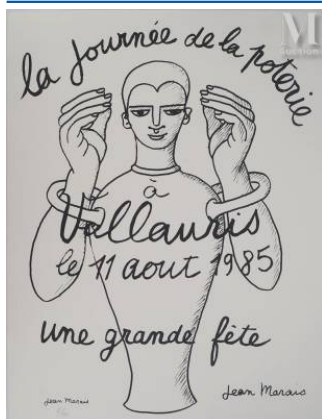 la journée de la poterie
à
Vallauris
le 11 aout 1985
une grande fête
Jean Marais
Jean Marais